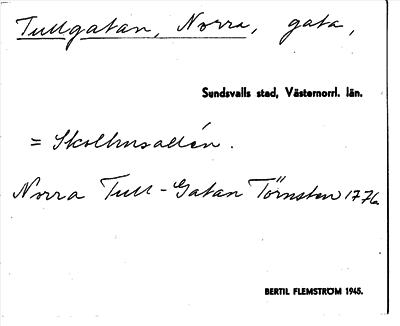 Tullgatan, Norra, gata,
Sundsvalls stad, Västernorrl. län.
= Skolhusallén.
Norra Tull-Gatan Törnsten 1776
BERTIL FLEMSTRÖM 1945.